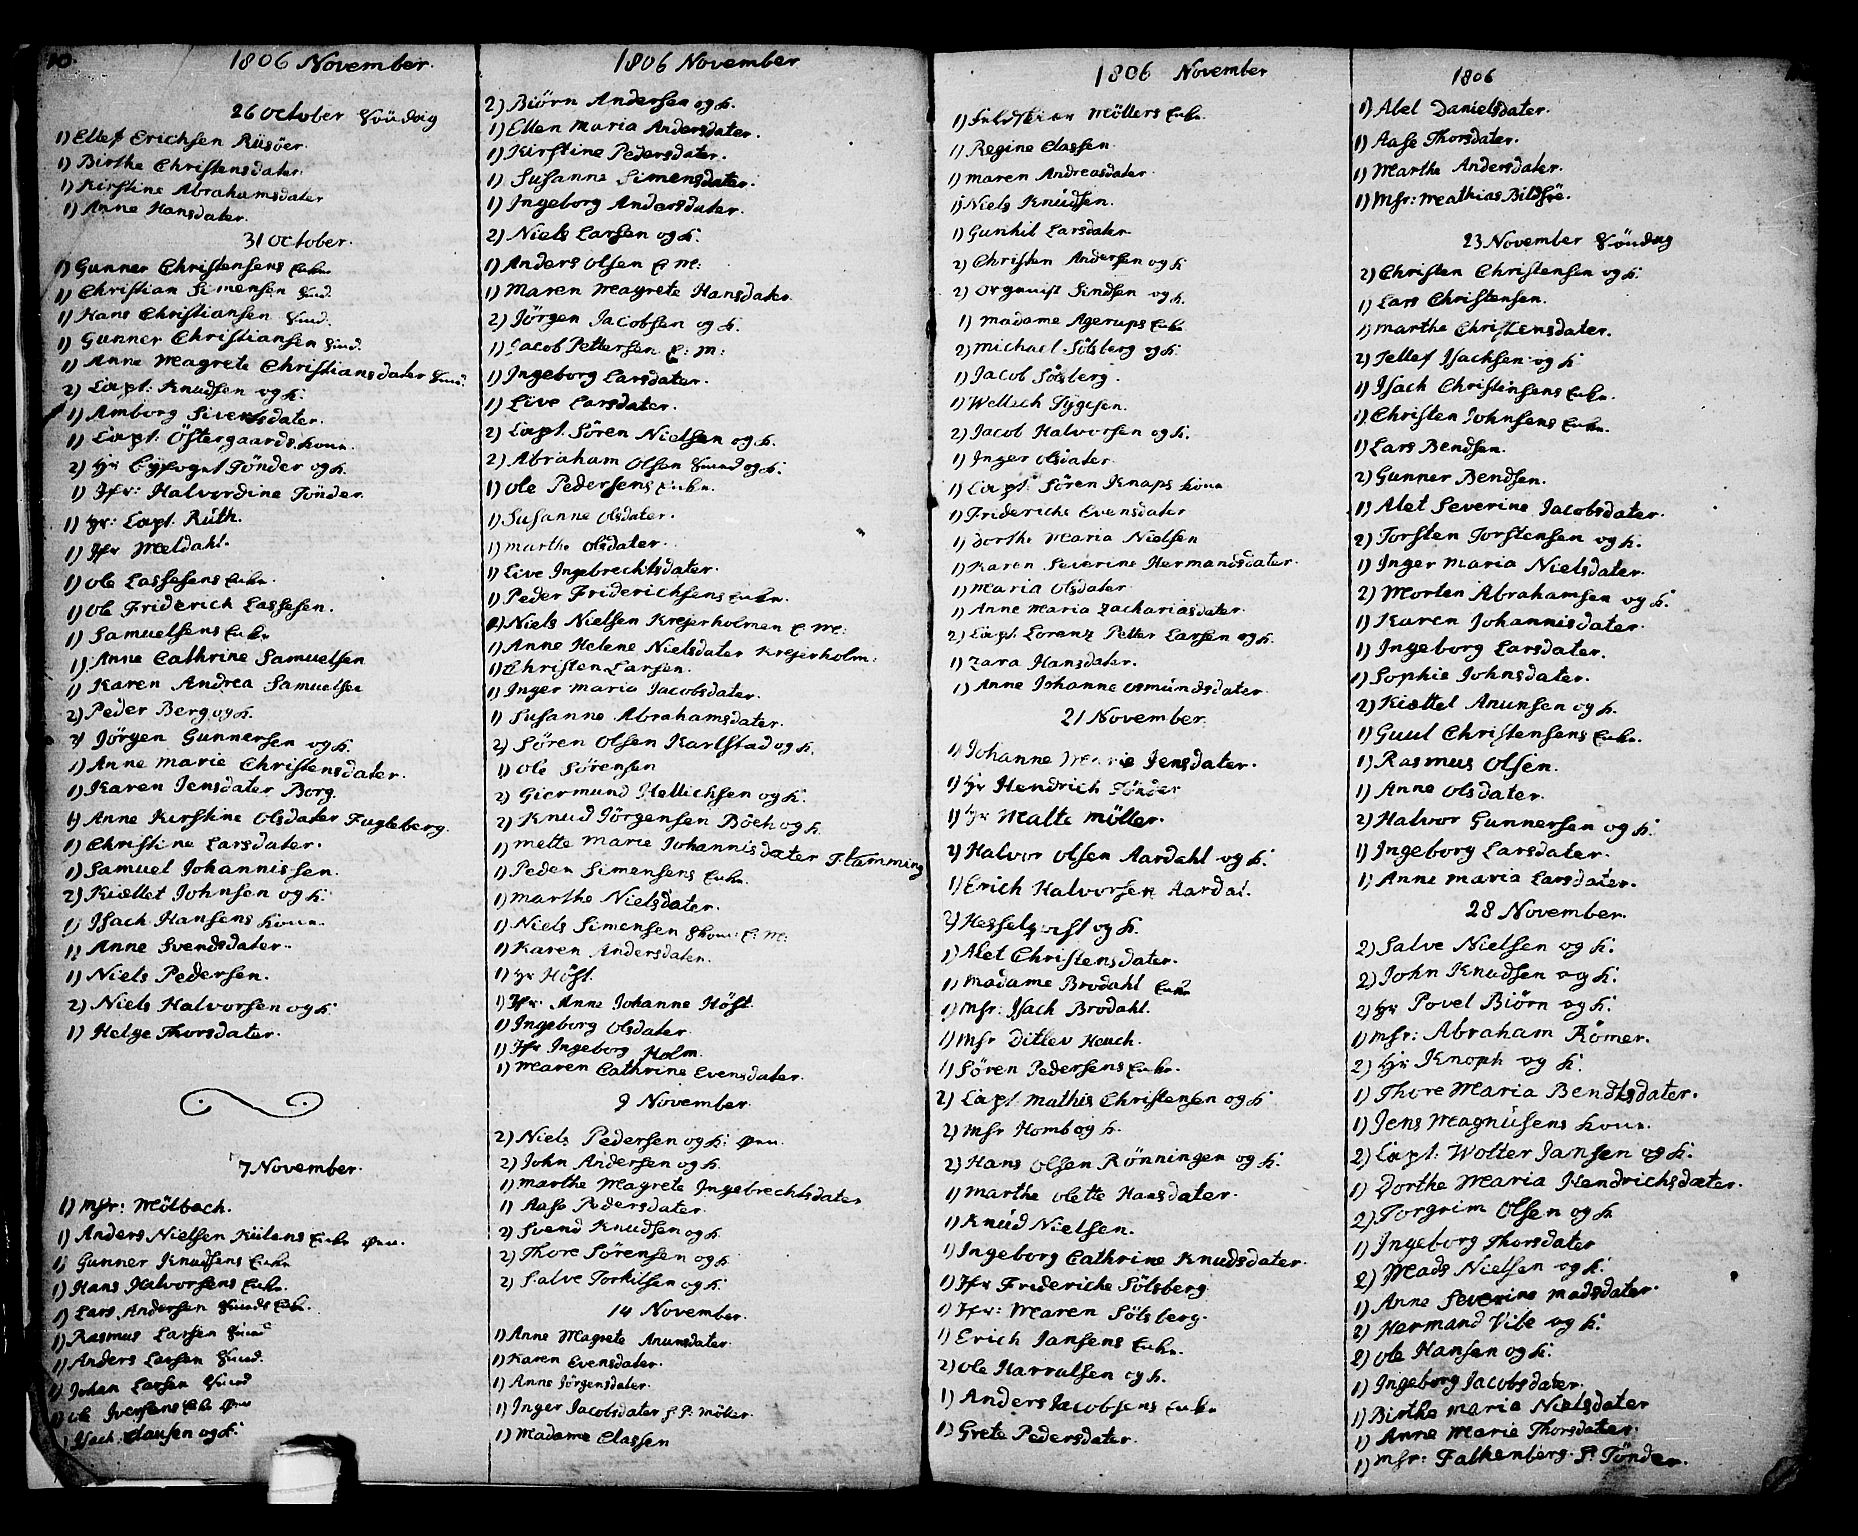 10.
1806 November.
26 October
1) Ellef Erichsen Riisöer
1) Birthe Christensdater.
1) Kirstine Abrahamsdater
1) Anne Hansdater.
31 October.
1) Gunner Christensens Enke
1) Christian Simensen
1) Hans Christiansen
1) Gunner Christiansen
1) Anne Magrete Christiansdater
2) Capt: Knudsen og k.
1) Amborg Siversdater.
1) Capt: Östergaards kone.
2) Hr Byfoget Tönder og k.
1) Jfr: Halvordine Tönder.
1) Hr: Capt. Ruth.
1) Jfr Meldahl.
1) Ole Lassesens Enke.
1) Ole Friderich Lassesen.
1) Samuelsens Enke
1) Anne Cathrine Samuelsen
1) Karen Andrea Samuelsen
2) Peder Berg og k.
2) Jörgen Gunnersen og k.
1) Anne Marie Christensdater.
1) Karen Jensdater Borg.
1) Anne Kirstine Olsdater Fugleberg.
1) Christine Larsdater.
1) Samuel Johannissen.
2) Kiettel Johnsen og k.
1) Isach Hansens kone.
1) Anne Svendsdater.
1) Niels Pedersen.
2) Niels Halvorsen og k
1) Helge Thorsdater.
7 November.
1) Msr: Mölbach.
1) Anders Nielsen Kulens Enke
1) Gunner Knudsens Enke
1) Hans Halvorsens Enke.
1) Lars Andersen Enke.
1) Rasmus Larsen
1) Anders Larsen
1) Johan Larsen
1) Ole Iversens Enke
Isach Clausen og k.
1806 November
2) Biörn Andersen og k.
1) Ellen Maria Andersdater.
1) Kirstine Pedersdater.
1) Susanne Simensdater.
1) Ingeborg Andersdater.
2) Niels Larsen og k.
1) Anders Olsen E: M:
1) Maren Magrete Hansdater
2) Jörgen Jacobsen og k.
1) Jacob Pettersen E: M:
1) Ingeborg Larsdater.
1) Live Larsdater.
2) Capt. Sören Nielsen og k.
2) Abraham Olsen og k.
1) Ole Pedersens Enke.
1) Susanne Olsdater.
1) Marthe Olsdater.
1) Live Ingebrechtsdater.
1) Peder Friderichsens Enke.
1) Niels Nielsen Krejerholmen E. M:
1) Anne Helene Nielsdater Krejerholm:
1) Christen Larsen.
1) Inger Maria Jacobsdater.
1) Susanne Abrahamsdater.
2) Sören Olsen Karlstad og k.
1) Ole Sörensen
2) Giermund Hellichsen og k.
2) Knud Jörgensen Böeh og k.
1) Mette Marie Johannisdater Flamming
1) Peder Simensens Enke.
1) Marthe Nielsdater.
1) Niels Simensen E: M:
1) Karen Andersdater.
1) Hr Höst.
1) Jfr: Anne Johanne Höst.
1) Ingeborg Olsdater
1) Jfr Ingeborg Holm.
1) Maren Cathrine Evensdater.
9 November.
2) Niels Pedersen og k:
2) John Andersen og k.
1) Marthe Magrete Ingebrechtsdater
1) Aase Pedersdater.
2) Svend Knudsen og k
2) Thore Sörensen og k.
2) Salve Torkilsen og k.
14 November.
1) Anne Magrete Anunsdater.
1) Karen Evensdater.
1) Anne Jörgensdater.
1) Inger Jacobsdater f. P. Möller.
1) Madame Classen
1806 November
1) Möllers Enke.
1) Regine Classen.
1) Maren Andreasdater.
1) Niels Knudsen.
1) Gunhil Larsdater
2) Christen Andersen og k
2) Orgquist Sindsen og k.
1) Madame Agerups Enke
2) Michael Sölsberg og k.
1) Jacob Sölsberg.
1) Weltsch Tygesen.
2) Jacob Halvorsen og k.
1) Inger Olsdater.
1) Capt: Sören Knaps kone
1) Friderichs Evensdater
1) Dorthe Maria Nielsen
1) Karen Severine Hermandsdater.
1) Maria Olsdater
1) Anne Maria Zachariasdater.
2) Capt. Lorenz Petter Larsen og k.
1) Zara Hansdater.
1) Anne Johanne Osmundsdater.
21 November.
1) Johanne Marie Jensdater.
1) Hr Hendrich Tönder
1) Hr Malte Möller.
2) Halvor Olsen Aardahl og k.
1) Erich Halvorsen Aardal.
2) Hesselqvist og k.
1) Alet Christensdater.
1) Madame Brodahl Enke
1) Msr: Isach Brodahl.
1) Msr Ditlev Heuch.
1) Sören Pedersens Enke.
2) Capt Mathis Christensen og k
2) Msr Homb og k.
2) Hans Olsen Rönningen og k.
1) Marthe Olette Hansdater.
1) Knud Nielsen.
1) Ingeborg Cathrine Knudsdater.
1) Jfr Frideriche Sölsberg
1) Jfr: Maren Sölsberg.
1) Erich Jansens Enke.
2) Ole Harralsen og k.
1) Anders Jacobsens Enke
1) Grete Pedersdater.
1806
1) Alel Danielsdater.
1) Aase Thorsdater.
1) Marthe Andersdater.
1) Msr: Mathias Bildsöe.
23 November Söndag
2) Christen Christensen og k
1) Lars Christensen.
1) Marthe Christensdater.
2) Tellef Isachsen og k
1) Isach Christensens Enke.
1) Christen Johnsens Enke.
1) Lars Bendsen.
2) Gunner Bendsen.
1) Alet Severine Jacobsdater.
2) Torsten Torstensen og k.
1) Inger Maria Nielsdater.
2) Morten Abrahamsen og k.
1) Karen Johannisdater.
1) Ingeborg Larsdater.
1) Sophie Johnsdater.
2) Kiettel Anunsen og k.
1) Guul Christensens Enke.
1) Rasmus Olsen.
1) Anne Olsdater.
2) Halvor Gunnersen og k.
1) Ingeborg Larsdater.
1) Anne Maria Larsdater.
28 November.
2) Salve Nielsen og k.
2) John Knudsen og k.
2) Hr Povel Biörn og k.
1) Msr: Abraham Römer.
2) Hr Knoph og k.
1) Thore Maria Bendtsdater.
1) Jens Magnusens kone.
2) Capt: Wolter Jansen og k.
1) Dorthe Maria Hendrichsdater.
2) Torgrim Olsen og k
1) Ingeborg Thorsdater
2) Mads Nielsen og k.
1) Anne Severine Madsdater.
2) Hermand Vibe og k.
2) Ole Hansen og k.
1) Ingeborg Jacobsdater.
1) Birthe Maria Nielsdater
1) Anne Marie Thorsdater.
1) Msr: Falkenberg. f. Tönder.